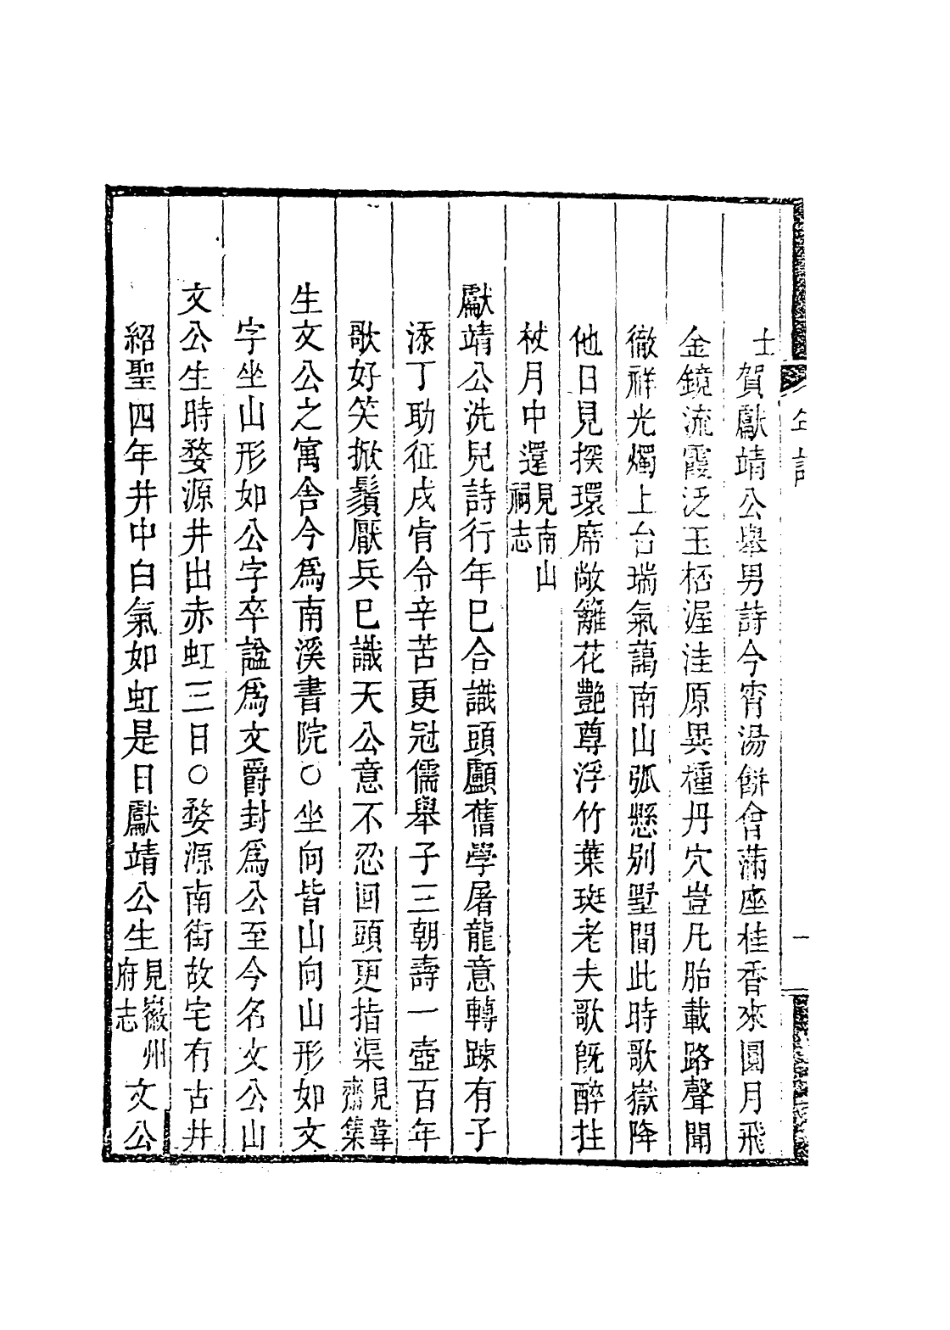 年譜
一
士賀獻靖公舉男詩今宵湯餅會滿座桂香來圓月飛
金鏡流霞泛玉桮渥洼原異種丹穴豈凡胎載路聲聞
徹祥光燭上台瑞氣藹南山弧懸別墅間此時歌嶽降
他日見探環席敞籬花艷尊浮竹葉斑老夫歌旣醉拄
杖月中還見南山祠志
獻靖公洗兒詩行年已合識頭顱舊學屠龍意轉踈有子
添丁助征戍肯令辛苦更冠儒舉子三朝壽一壺百年
歌好笑掀鬚厭兵已識天公意不忍回頭更指渠見韋齋集
生文公之寓舍今爲南溪書院○坐向皆山向山形如文
字坐山形如公字卒諡爲文爵封爲公至今名文公山
文公生時婺源井出赤虹三日○婺源南街故宅有古井
紹聖四年井中白氣如虹是日獻靖公生見徽州府志文公